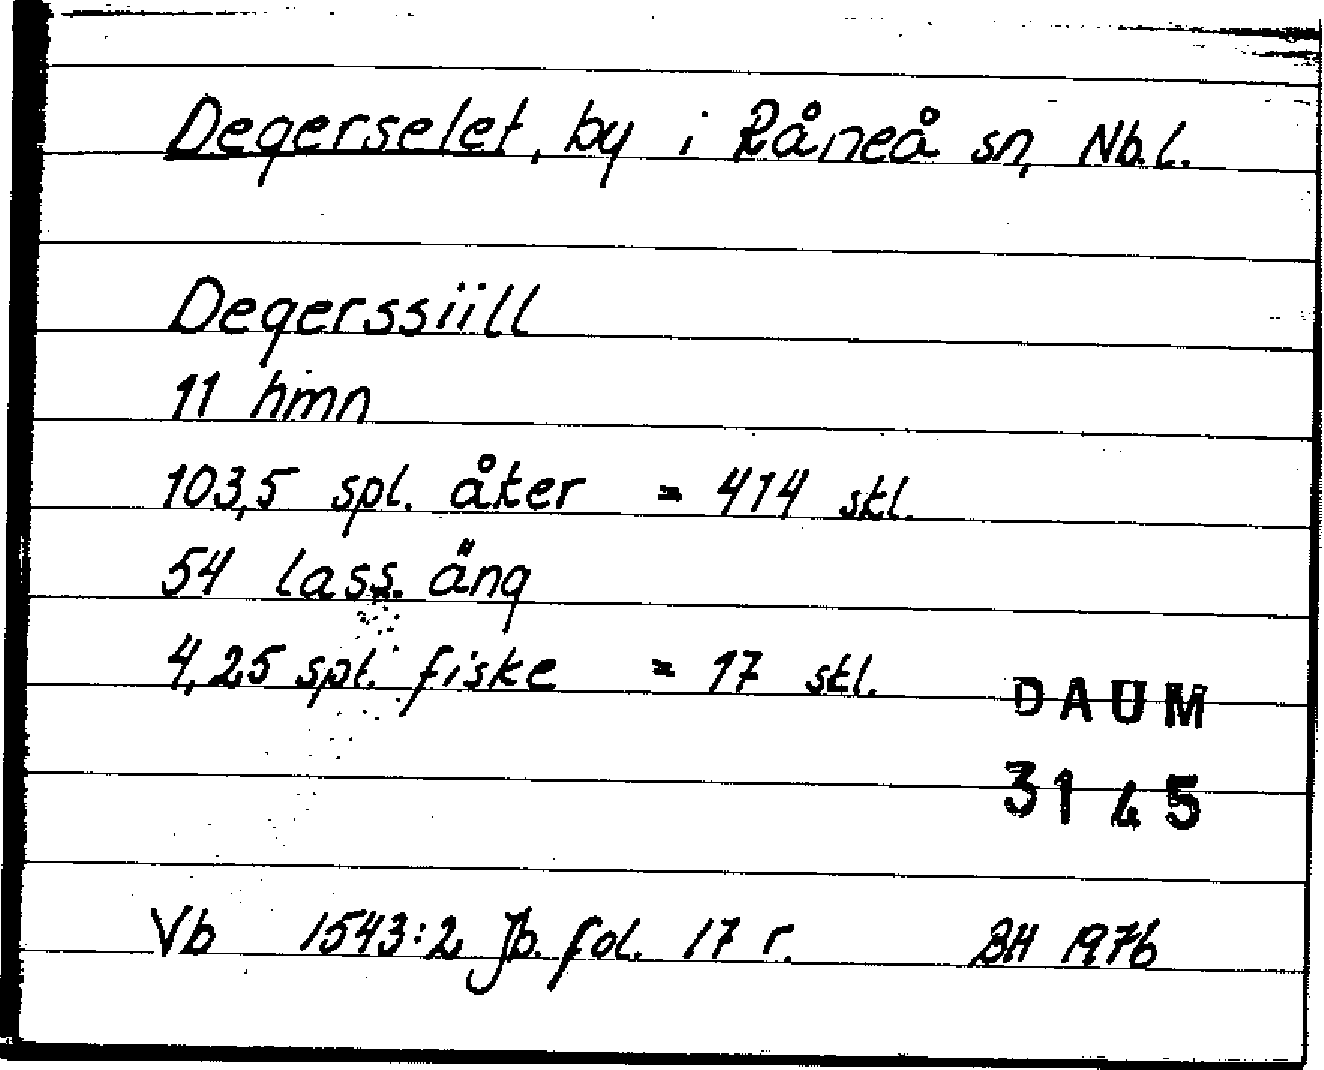 Degerselet, by i Råneå sn, Nb.l.
Degerssiill
11 hmn
103,5 spl. åker = 414 skl.
54 lass. äng
4,25 spl. fiske = 17 skl.
DAUM
3145
Vb 1543:2 Jb. fol. 17 r. BH 1976